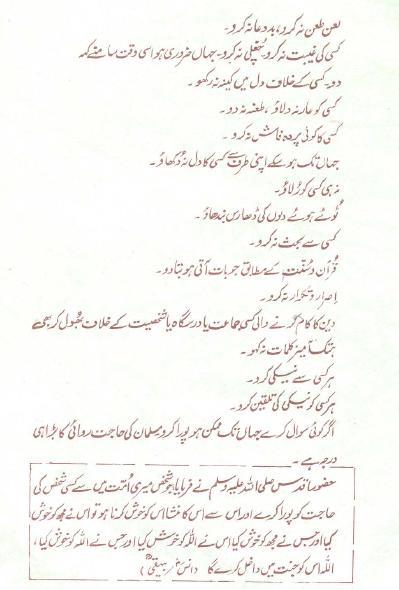 لعن طعن نہ کرو، بددعا نہ کرو۔
کسی کی غیبت نہ کرو، چغلی نہ کرو۔ جہاں ضروری ہو اسی وقت سامنے کہہ
دو۔ کسی کے خلاف دل میں کینہ نہ رکھو۔
کسی کو عار نہ دلاؤ، طعنہ نہ دو۔
کسی کا کوئی پردہ فاش نہ کرو۔
جہاں تک ہو سکے اپنی طرف سے کسی کا دل نہ دُکھاؤ۔
نہ ہی کسی کو رُلاؤ۔
ٹوٹے ہوئے دلوں کی ڈھارس بندھاؤ۔
کسی سے بحث نہ کرو۔
قرآن و سُنّت کے مطابق جو بات آتی ہو بتا دو۔
اصرار و تکرار نہ کرو۔
دین کا کام کرنے والی کسی جماعت یا درسگاہ یا شخصیت کے خلاف بھول کر بھی
ہتک آمیز کلمات نہ کہو۔
ہر کسی سے نیکی کرو۔
ہر کسی کو نیکی کی تلقین کرو۔
اگر کوئی سوال کرے جہاں تک ممکن ہو پورا کرو۔ مسلمان کی حاجت روائی کا بڑا ہی
درجہ ہے۔
حضور اقدس صلی اللہ علیہ وسلم نے فرمایا جو شخص میری اُمّت میں سے کسی شخص کی
حاجت کو پورا کرے اور اس سے اس کا منشا اس کو خوش کرنا ہو تو اس نے مجھ کو خوش
کیا اور جس نے مجھ کو خوش کیا اس نے اللہ کو خوش کیا اور جس نے اللہ کو خوش کیا،
اللہ اس کو جنت میں داخل کرے گا (انسؓ، بیہقیؒ)